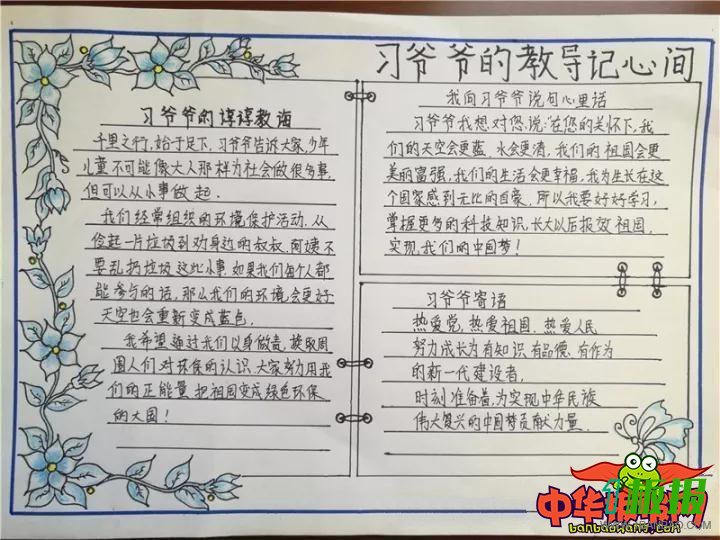 习爷爷的教导记心间
习爷爷的谆谆教诲
千里之行,始于足下,习爷爷告诉大家,少年
儿童不可能像大人那样为社会做很多事,
但可以从小事做起.
我们经常组织的环境保护活动.从
捡起一片垃圾到劝身边的叔叔、阿姨不
要乱扔垃圾这些小事.如果我们每个人都
能参与的话,那么我们的环境会更好
天空也会重新变成蓝色.
我希望通过我们以身做责,提取周
围人们对环保的认识,大家努力用我
们的正能量把祖国变成绿色环保
的大国!
我向习爷爷说句心里话
习爷爷我想对您说:“在您的关怀下,我
们的天空会更蓝,水会更清,我们的祖国会更
美丽富强,我们的生活会更幸福,我为生长在这
个国家感到无比的自豪,所以我要好好学习,
掌握更多的科技知识,长大以后报效祖国,
实现我们的中国梦!
习爷爷寄语
热爱党,热爱祖国,热爱人民
努力成长为有知识、有品德、有作为
的新一代建设者,
时刻准备着,为实现中华民族
伟大复兴的中国梦贡献力量.
中华
网
banbaohang.com